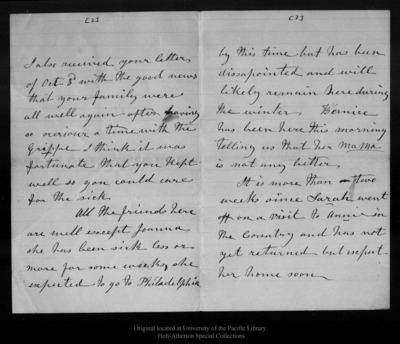 [2]
I also received your letter
of Oct 8th with the good news
that your family were
all well again after having
so serious a time with the
Grippe I think it was
fortunate that you kept
well so you could care
for the sick.
All the friends here
are well except Joanna
she has been sick less or
more for some weeks, she
expected to go to Philadelphia
[3]
by this time but has been
dissapointed and will
likely remain here during
the winter. Bernice
has been here this morning
telling us that her Mama
is not any better.
It is more than two
weeks since Sarah went
off on a visit to Annie in
the Country and has not
yet returned but expect
her home soon
Original located at University of the Pacific Library
Holt-Atherton Special Collections